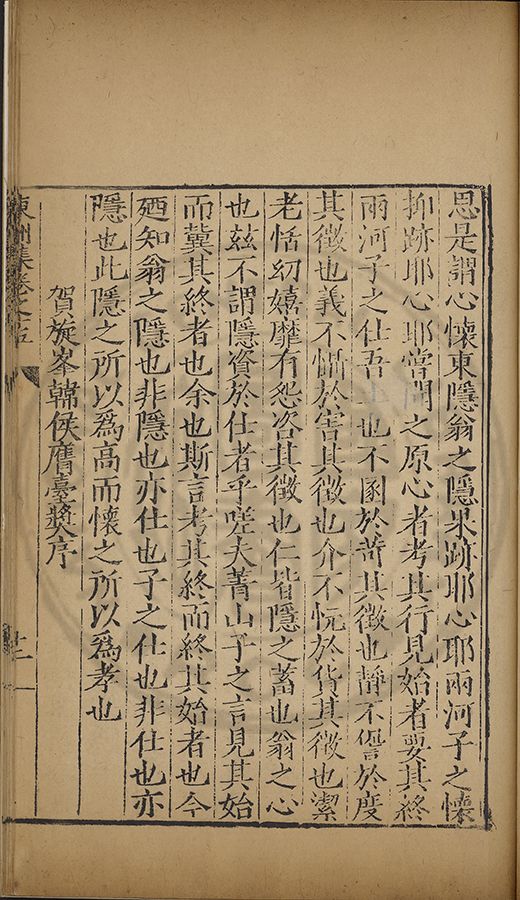 思是謂心懷東隱翁之隱果跡耶心耶兩河子之懷
抑跡耶心耶嘗聞之原心者考其行見始者要其終
兩河子之仕吾土也不圂於苛其徵也靜不僭於度
其徵也義不惰於害其徵也介不怳於貨其徵也潔
老恬幼嬉靡有怨咨其徵也仁皆隱之蓄也翁之心
也玆不謂隱資於仕者乎嗟夫菁山子之言見其始
而冀其終者也余也斯言考其終而終其始者也今
廼知翁之隱也非隱也亦仕也子之仕也非仕也亦
隱也此隱之所以爲高而懷之所以爲孝也
賀旋峯韓侯膺臺奬序
東洲集卷之五
廿二